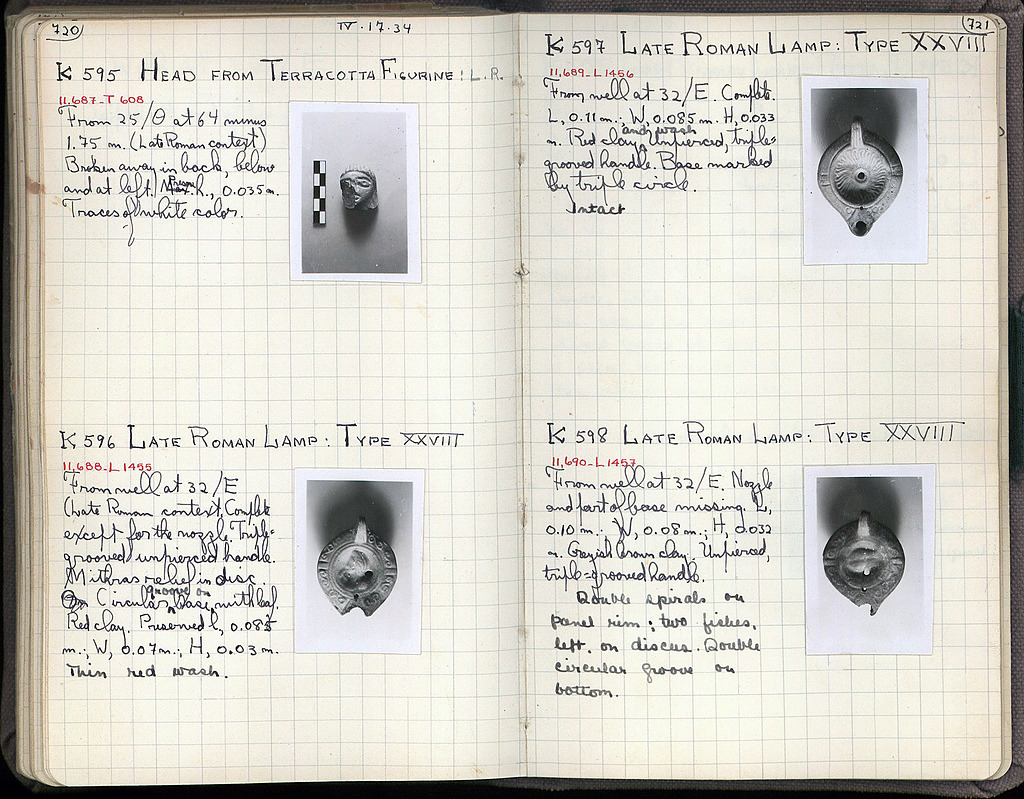 720
IV.17.34
K 595 HEAD FROM TERRACOTTA FIGURINE: L.R.
11,687-T 608
From 25/Θ at 64 minus
1.75 m. (Late Roman context)
Broken away in back, below
and at left. Pres. h., 0.035 m.
Traces of white color.
K 596 LATE ROMAN LAMP: TYPE XXVIII
11,688-L 1455
From well at 32/E
(Late Roman context. Complete
except for the nozzle. Triple-
grooved unpierced handle.
Mithras relief in disc.
Circular groove on base, with leaf.
Red clay. Preserved l, 0.085
m.; W, 0.07 m.; H, 0.03 m.
Thin red wash.
721
K 597 LATE ROMAN LAMP: TYPE XXVIII
11,689-L 1456
From well at 32/E. Complete.
L, 0.11 m.; W, 0.085 m. H, 0.033
m. Red clay and wash. Unpierced, triple-
grooved handle. Base marked
by triple circle.
Intact
K 598 LATE ROMAN LAMP: TYPE XXVIII
11,690-L 1457
From well at 32/E. Nozzle
and part of base missing. L,
0.10 m.; W, 0.08 m.; H, 0.032
m. Greyish brown clay. Unpierced,
triple-grooved handle.
Double spirals on
panel rim; two fishes,
left, on discus. Double
circular groove on
bottom.